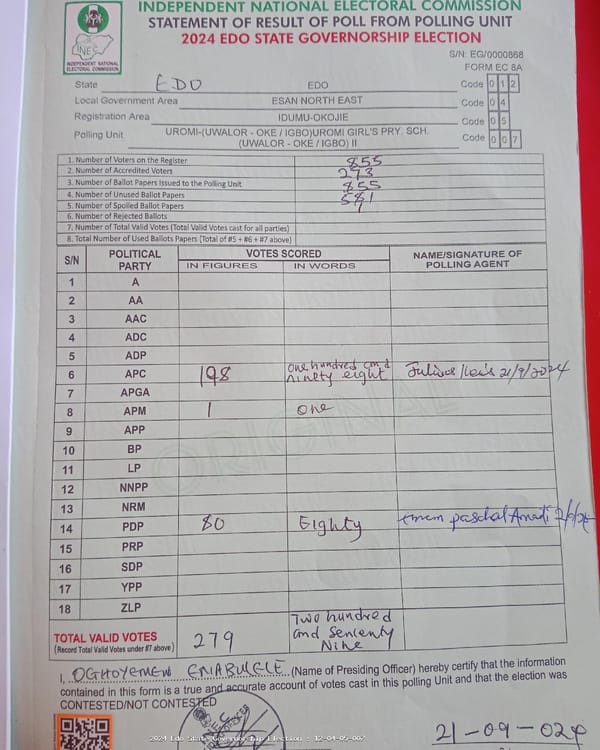 INDEPENDENT NATIONAL ELECTORAL COMMISSION
STATEMENT OF RESULT OF POLL FROM POLLING UNIT
2024 EDO STATE GOVERNORSHIP ELECTION
INEC
INDEPENDENT NATIONAL
ELECTORAL COMMISSION
S/N: EG/0000868
FORM EC 8A
State EDO EDO Code 0 1 2
Local Government Area ESAN NORTH EAST Code 0 4
Registration Area IDUMU-OKOJIE Code 0 5
Polling Unit UROMI-(UWALOR - OKE / IGBO)UROMI GIRL'S PRY. SCH. (UWALOR - OKE / IGBO) II Code 0 0 7
1. Number of Voters on the Register 855
2. Number of Accredited Voters 293
3. Number of Ballot Papers Issued to the Polling Unit 855
4. Number of Unused Ballot Papers 581
5. Number of Spoiled Ballot Papers
6. Number of Rejected Ballots
7. Number of Total Valid Votes (Total Valid Votes cast for all parties)
8. Total Number of Used Ballots Papers (Total of #5 + #6 + #7 above)
S/N POLITICAL PARTY VOTES SCORED NAME/SIGNATURE OF POLLING AGENT
IN FIGURES IN WORDS
1 A
2 AA
3 AAC
4 ADC
5 ADP
6 APC 198 one hundred and ninety eight 21/9/2024
7 APGA
8 APM 1 one
9 APP
10 BP
11 LP
12 NNPP
13 NRM
14 PDP 80 Eighty paschal Amadi
15 PRP
16 SDP
17 YPP
18 ZLP
ORIGINAL
TOTAL VALID VOTES 279 Two hundred and Seventy Nine
(Record Total Valid Votes under #7 above)
I, OGHOYEMEN ENABULELE (Name of Presiding Officer) hereby certify that the information
contained in this form is a true and accurate account of votes cast in this polling Unit and that the election was
CONTESTED/NOT CONTESTED
2024 Edo State Governorship Election - 12-04-05-007
21-09-024